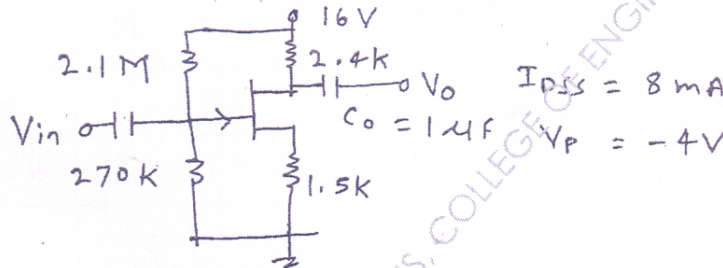 16V
2.1M
2.4K
Vo
IDSS = 8mA
Vin
Co = 1μF
VP = -4V
270K
1.5K
S, COLLEGE OF ENGIN